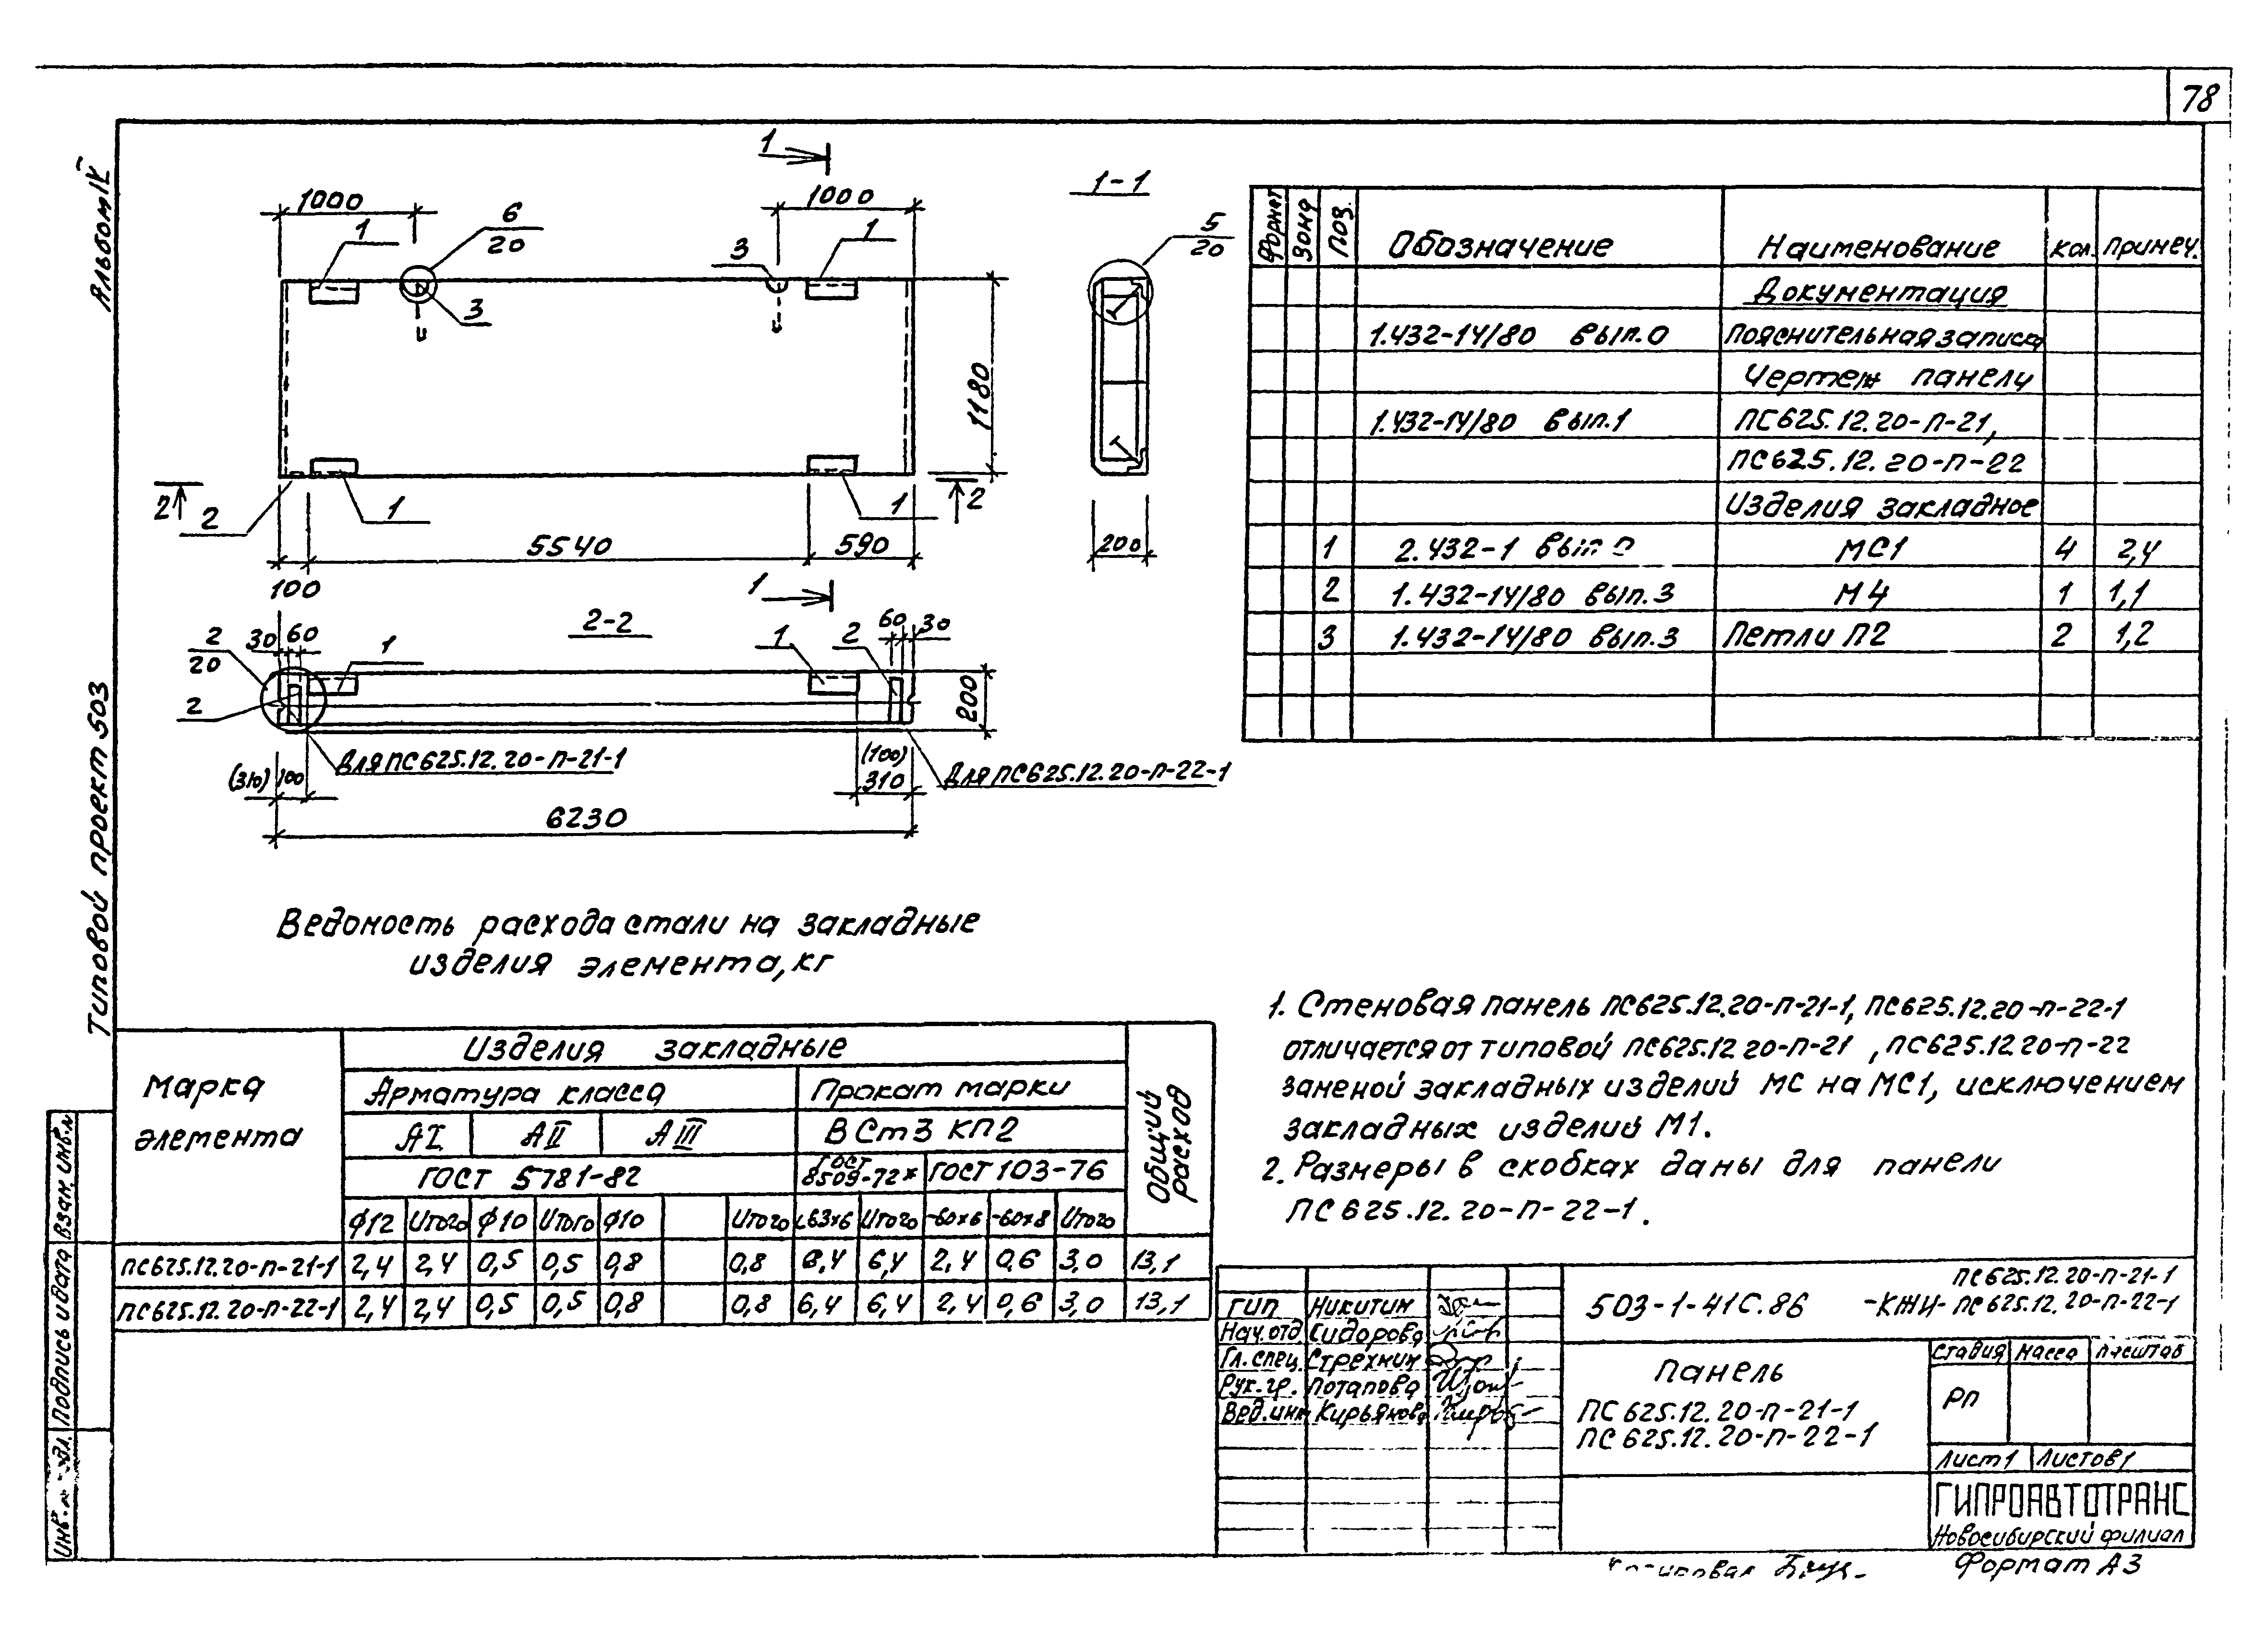 78
Альбом IV
Типовой проект 503
1
1000
1000
1
6
20
3
1
3
1180
2
2
1
1
2
5540
590
100
1
1-1
5
20
200
2-2
2
20
30
60
1
1
2
60
30
2
200
Для ПС625.12.20-п-21-1
(310)
100
(100)
310
Для ПС625.12.20-п-22-1
6230
Формат
Зона
Поз.
Обозначение
Наименование
Кол.
Примеч.
Документация
1.432-14/80 вып.0 Пояснительная записка
Чертеж панели
1.432-14/80 вып.1 ПС625.12.20-п-21,
ПС625.12.20-п-22
Изделия закладное
1 2.432-1 вып МС1 4 2,4
2 1.432-14/80 вып.3 М4 1 1,1
3 1.432-14/80 вып.3 Петли П2 2 1,2
Ведомость расхода стали на закладные
изделия элемента, кг
Марка
элемента
Изделия закладные
Общий
расход
Арматура класса
Прокат марки
АI АII АIII
ВСт3 КП2
ГОСТ 5781-82
ГОСТ
8509-72*
ГОСТ 103-76
ф12 Итого ф10 Итого ф10 Итого L63х6 Итого -60х6 -60х8 Итого
ПС625.12.20-п-21-1 2,4 2,4 0,5 0,5 0,8 0,8 6,4 6,4 2,4 0,6 3,0 13,1
ПС625.12.20-п-22-1 2,4 2,4 0,5 0,5 0,8 0,8 6,4 6,4 2,4 0,6 3,0 13,1
1. Стеновая панель ПС625.12.20-п-21-1, ПС625.12.20-п-22-1
отличается от типовой ПС625.12 20-п-21 , ПС625.12 20-п-22
заменой закладных изделий МС на МС1, исключением
закладных изделий М1.
2. Размеры в скобках даны для панели
ПС625.12.20-п-22-1.
Взам. инв.№
Подпись и дата
Инв.
ГИП Никитин
Нач.отд Сидорова
Гл.спец. Стрехнин
Рук.гр. Потапова
Вед.инж Кирьянова
ПС625.12.20-п-21-1
503-1-41С.86 -КЖИ- ПС625.12.20-п-22-1
Панель
ПС625.12.20-п-21-1
ПС625.12.20-п-22-1
Стадия Масса Масштаб
РП
Лист 1 Листов 1
ГИПРОАВТОТРАНС
Новосибирский филиал
Формат А3